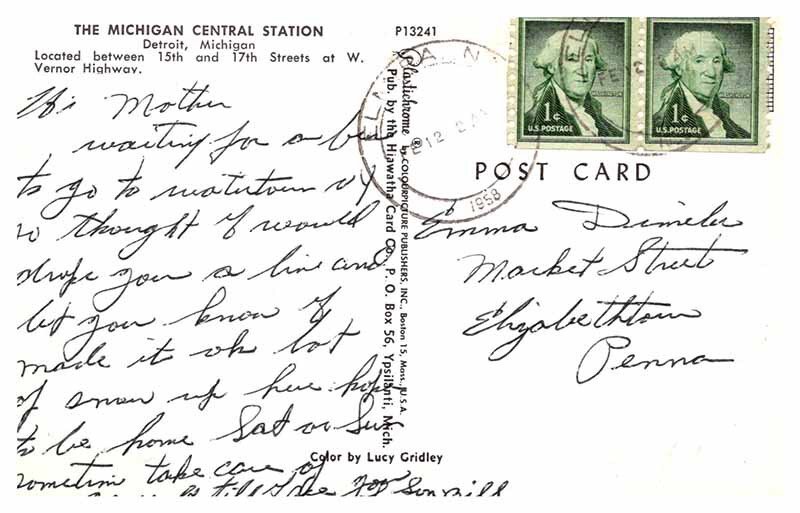 THE MICHIGAN CENTRAL STATION
Detroit, Michigan
Located between 15th and 17th Streets at W.
Vernor Highway.
P13241
Hi Mother
waiting for a bus
to go to watertown NY
so thought I would
drop you a line and
let you know I
made it ok lot
of snow up here hope
to be home Sat or Sun
sometime take care of
till I see you Son Bill
Plastichrome ® by COLOURPICTURE PUBLISHERS, INC., Boston 15, Mass., U.S.A.
Pub. by the Hiawatha Card Co., P. O. Box 56, Ypsilanti, Mich.
Color by Lucy Gridley
ELM
FEB 12
1958
1¢
U.S. POSTAGE
WASHINGTON
1¢
U.S. POSTAGE
WASHINGTON
POST CARD
Emma
Market Street
Elizabethtown
Penna